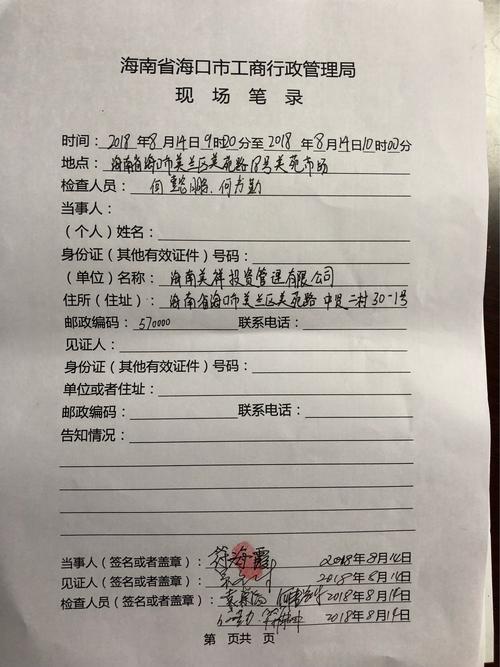 海南省海口市工商行政管理局
现 场 笔 录
时间：2018 年 8 月 14 日 9 时 20 分至 2018 年 8 月 14 日 10 时 00 分
地点：海南省海口市美兰区美苑路18号美苑市场
检查人员：
当事人：
（个人）姓名：
身份证（其他有效证件）号码：
（单位）名称：海南美祥投资管理有限公司
住所（住址）：海南省海口市美兰区美苑路 中贤二村30-1号
邮政编码：570000 联系电话：
见证人：
身份证（其他有效证件）号码：
单位或者住址：
邮政编码： 联系电话：
告知情况：
当事人（签名或者盖章）：符海霞 2018 年 8 月 14 日
见证人（签名或者盖章）： 2018 年 8 月 14 日
检查人员（签名或者盖章）： 2018 年 8 月 14 日
2018 年 8 月 14 日
第 页共 页